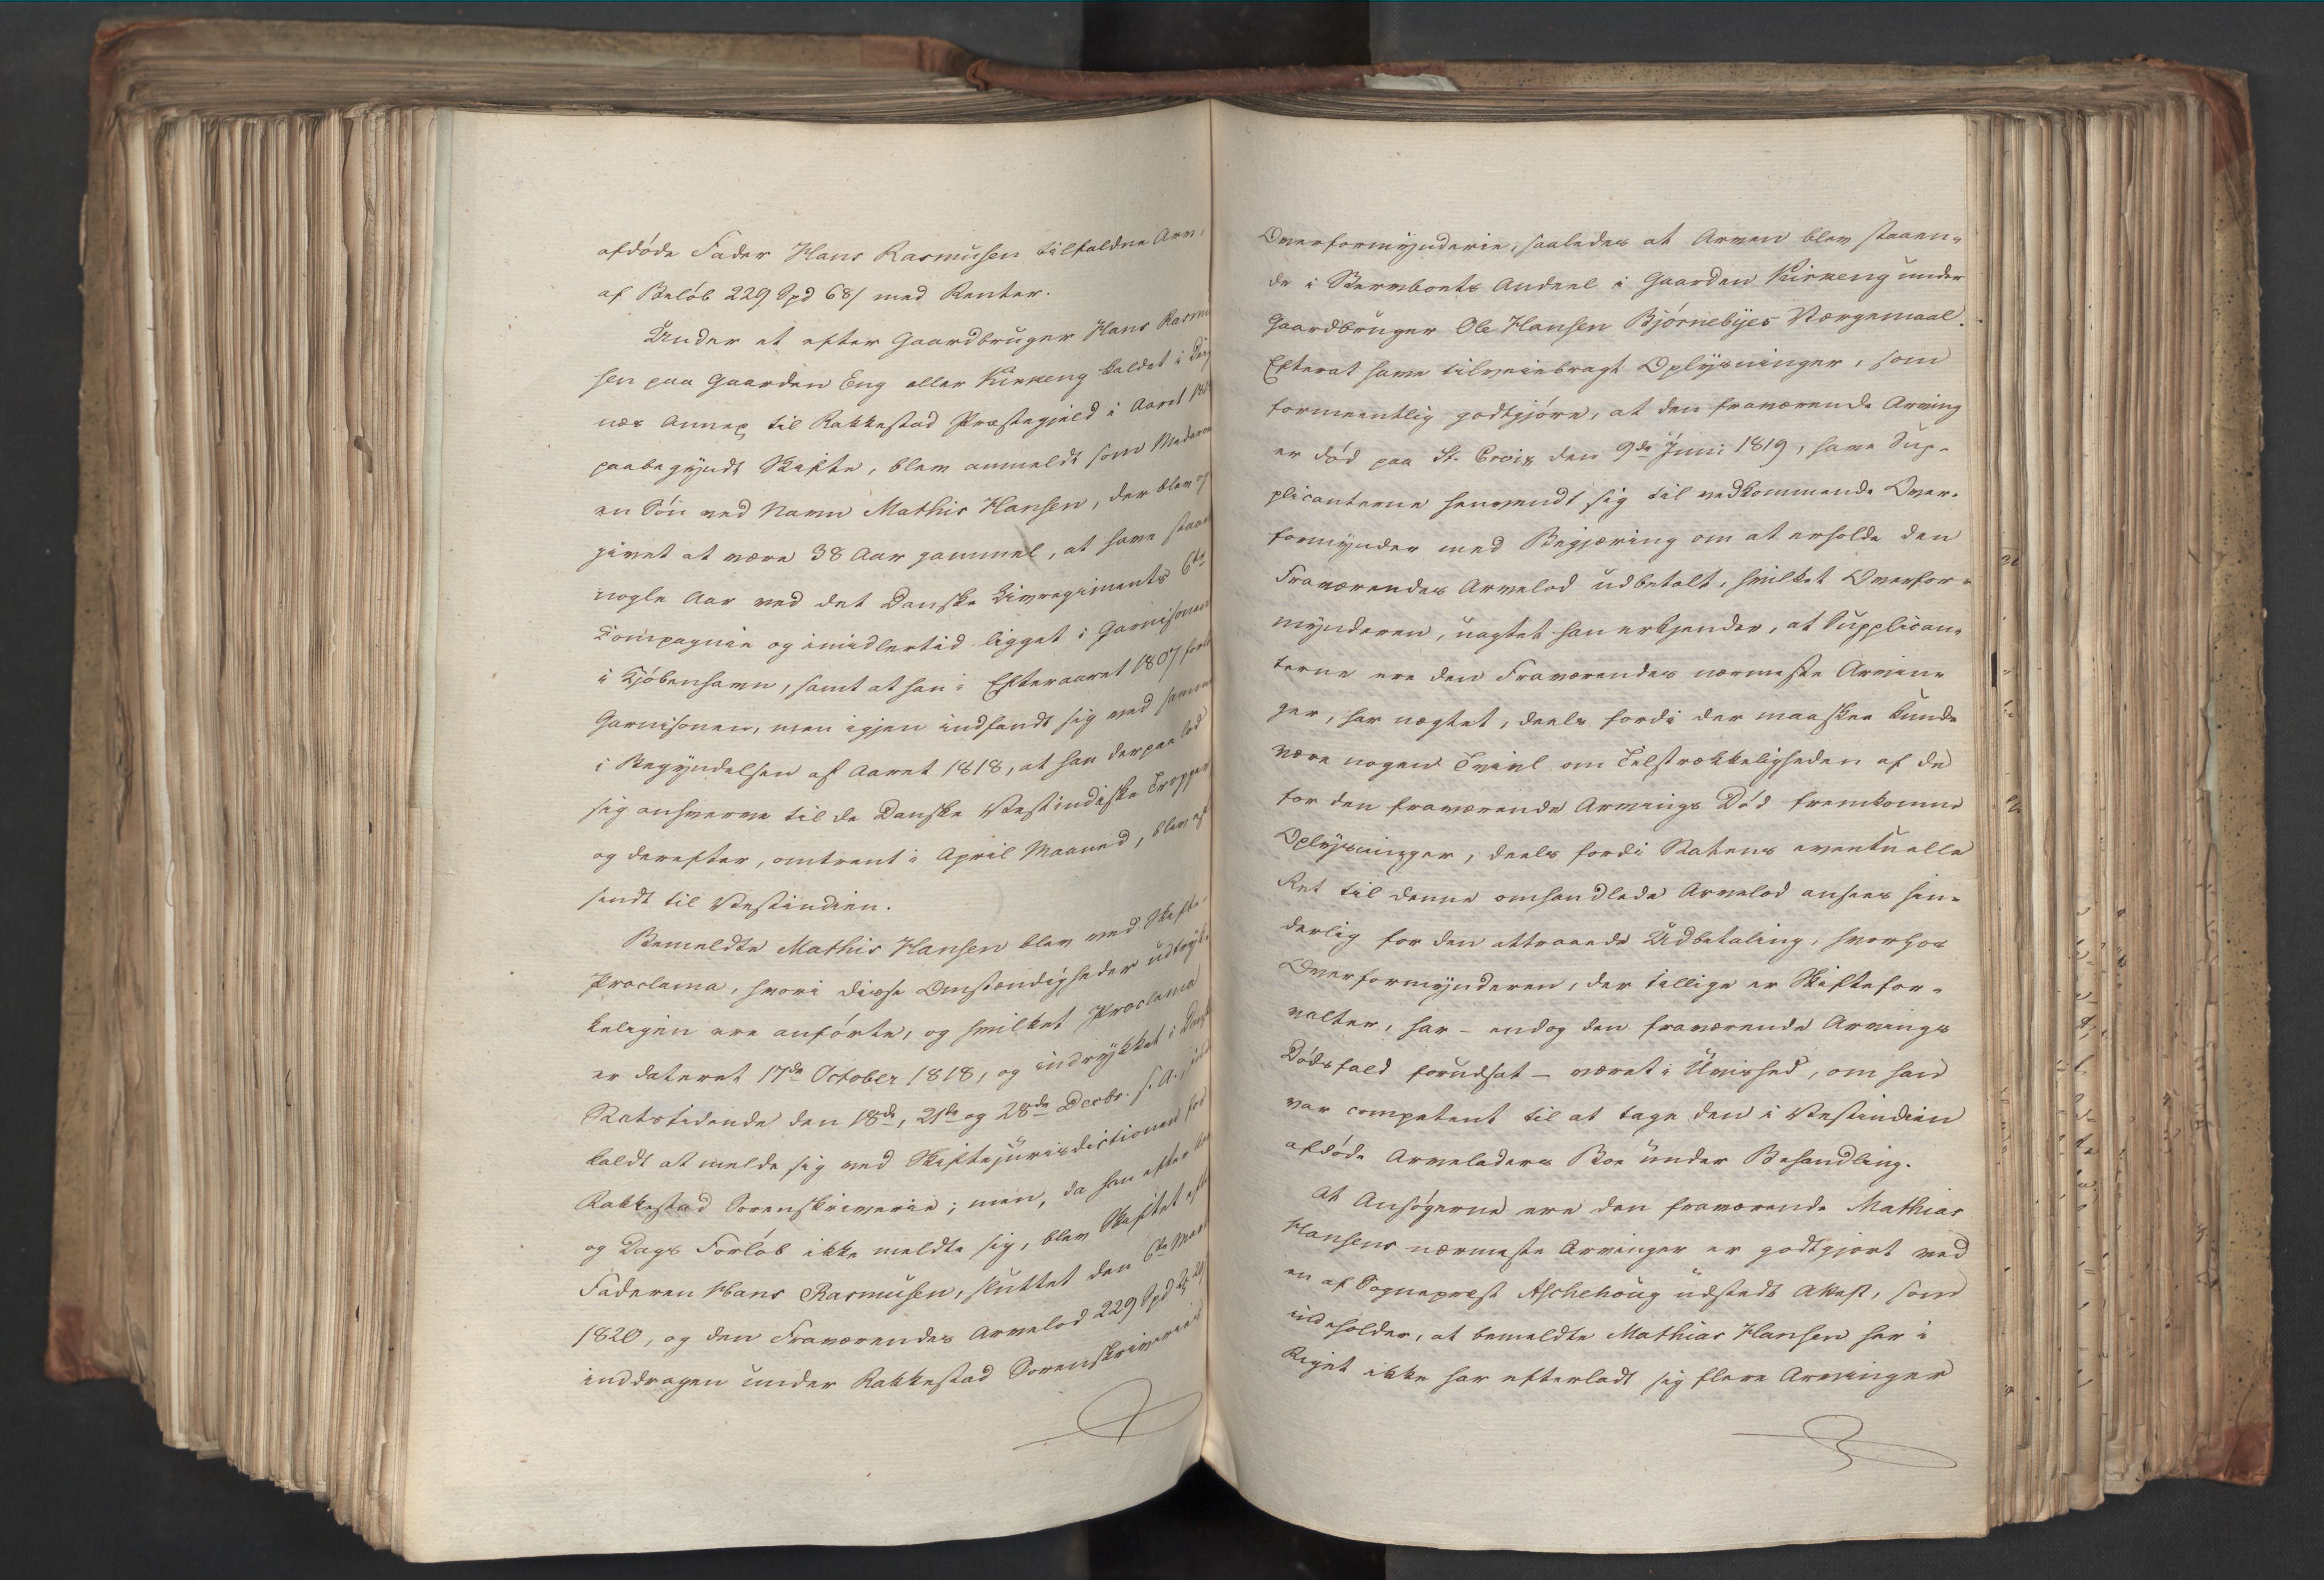 afdöde Fader Hans Rasmusen tilfaldne Arv,
af Belöb 229 Spd 68/ med Renter.
Under et efter Gaardbruger Hans Rasmu
sen paa Gaarden Eng eller Kirkeng kaldet i
næs Annex til Rakkestad Præstegjeld i Aaret
paabegyndt Skifte, blev anmeldt som Medarv
en Sön ved Navn Mathis Hansen, der blev op
givet at være 38 Aar gammel, at have staaet
nogle Aar ved det Danske Livregiments 6te
Compagnie og imidlertid ligget i Garnisonen
i Kjöbenhavn, samt at han i Efteraaret 1807 forlod
Garnisonen, men igjen indfandt sig ved samme
i Begyndelsen af Aaret 1818, at han derpaa lod
sig anhverve til de Danske Vestindiske Tropper
og derefter, omtrent i April Maaned, blev af
sendt til Vestindien.
Bemeldte Mathis Hansen blev ved Skifte-
Proclama, hvori disse Omstændigheder udtryk-
keligen ere anförte, og hvilket Proclama
er dateret 17de October 1818, og indrykket i
Statstidende den 18de, 21de og 28de Decbr. s. A., ind
kaldt at melde sig ved Skiftejurisdictionen for
Rakkestad Sorenskriverie; men, da han efter Aar
og Dags Forlöb ikke meldte sig, blev Skiftet efter
Faderen Hans Rasmusen, sluttet den 6te
1820, og den Fraværendes Arvelod 229 Spd
inddragen under Rakkestad Sorenskriveries
Overformynderie, saaledes at Arven blev staaen-
de i Stervboets Andeel i Gaarden Kirkeng under
Gaardbruger Ole Hansen Björnebyes Værgemaal.
Efterat have tilveiebragt Oplysninger, som
formeentlig godtgjöre, at den fraværende Arving
er död paa St. Croix den 9de Juni 1819, have Sup-
plicanterne henvendt sig til vedkommende Over-
formynder med Begjæring om at erholde den
Fraværendes Arvelod udbetalt, hvilket Overfor-
mynderen, uagtet han erkjender, at Supplican-
terne ere den Fraværendes nærmeste Arvin-
ger, har nægtet, deels fordi der maaskee kunde
være nogen Tvivl om Tilstrækkeligheden af de
for den fraværende Arvings Död fremkomne
Oplysninger, deels fordi Statens eventuelle
Ret til denne omhandlede Arvelod ansees hin-
derlig for den attraaede Udbetaling, hvorhos
Overformynderen, der tillige er Skiftefor-
valter, har - endog den fraværende Arvings
Dödsfald forudsat - været i Uvished, om han
var competent til at tage den i Vestindien
afdöde Arveladers Boe under Behandling.
At Ansögerne ere den fraværende Mathias
Hansens nærmeste Arvinger er godtgjort ved
en af Sognepræst Aschehoug udstedt Attest, som
indeholder, at bemeldte Mathias Hansen her i
Riget ikke har efterladt sig flere Arvinger